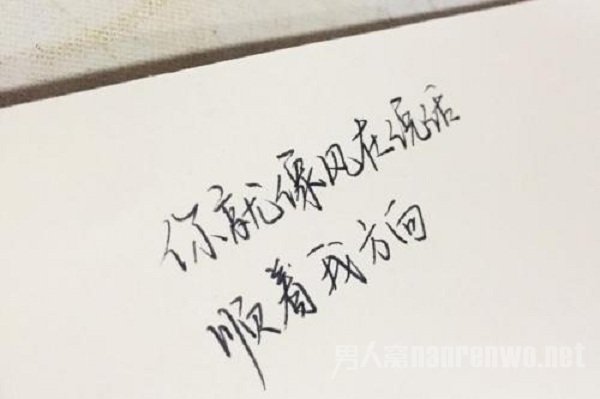 你就像风在说话
顺着我方向
男人窝nanrenwo.net